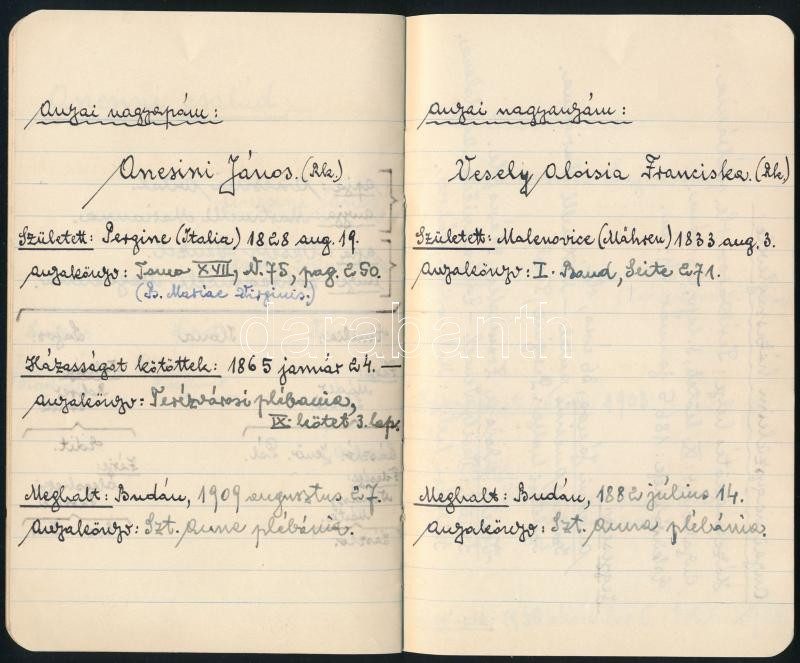 Anyai nagyapám:
Anesini János. (Rk.)
Született: Pergine (Italia) 1828 aug. 19.
Anyakönyv: Tomo XVII, N. 75, pag. 250.
(B. Mariae Virginis.)
Házasságot kötöttek: 1865 január 24. —
Anyakönyv: Terézvárosi plébania,
IX. kötet 3. lap.
Meghalt: Budán, 1909 augusztus 27.
Anyakönyv: Szt. Anna plébánia.
Anyai nagyanyám:
Vesely Aloisia Franciska. (Rk.)
Született: Malenovice (Mähren) 1833 aug. 3.
Anyakönyv: I. Band, Seite 271.
Meghalt: Budán, 1882 július 14.
Anyakönyv: Szt. Anna plébánia.
darabanth